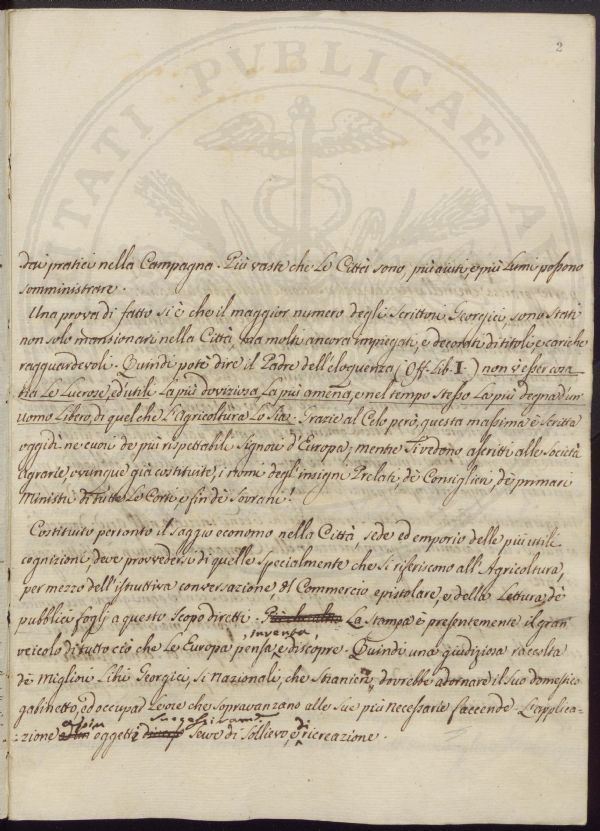 2
dai pratici nella Campagna. Più vaste che le Città sono, più ajuti, e più lumi possono
somministrare.
Una prova di fatto si è che il maggior numero degli Scrittori Georgici, sono stati
non solo mansionari nella Città, ma molti ancora impiegati, e decorati di titoli, e cariche
ragguardevoli. Quindi potè dire il Padre dell'eloquenza (Off. Lib. I.) non v'esser cosa
tra le lucrose, ed utili la più doviziosa, la più amena, e nel tempo stesso la più degna d'un
uomo libero, di quel che l'Agricoltura lo sia. Grazie al Celo però, questa massima è scritta
oggidì ne cuori de più rispettabili Signori d'Europa, mentre si vedono ascritti alle Società
Agrarie, ovunque già costituite, i nomi degl'insigni Prelati, de Consiglieri, de primari
Ministri di tutte le Corti, e fin de Sovrani!
Costituito pertanto il saggio economo nella Città, sede ed emporio delle più utili
cognizioni deve provvedersi di quelle specialmente che si riferiscono all'Agricoltura,
per mezzo dell'istruttiva conversazione, del Commercio epistolare, e della Lettura, de
pubblici fogli a questo scopo diretti. La Stampa è presentemente il gran
veicolo di tutto ciò che le Europa pensa, inventa, e discopre. Quindi una giudiziosa raccolta
de migliori Libri Georgici, si nazionali, che stranieri, dovrebbe adornare il suo domestico
gabinetto, ed occupar l'ore che sopravanzano alle sue più necessarie faccende. L'applica-
:zione a più oggetti successivamente serve di sollievo, e di ricreazione.
PUBLICAE